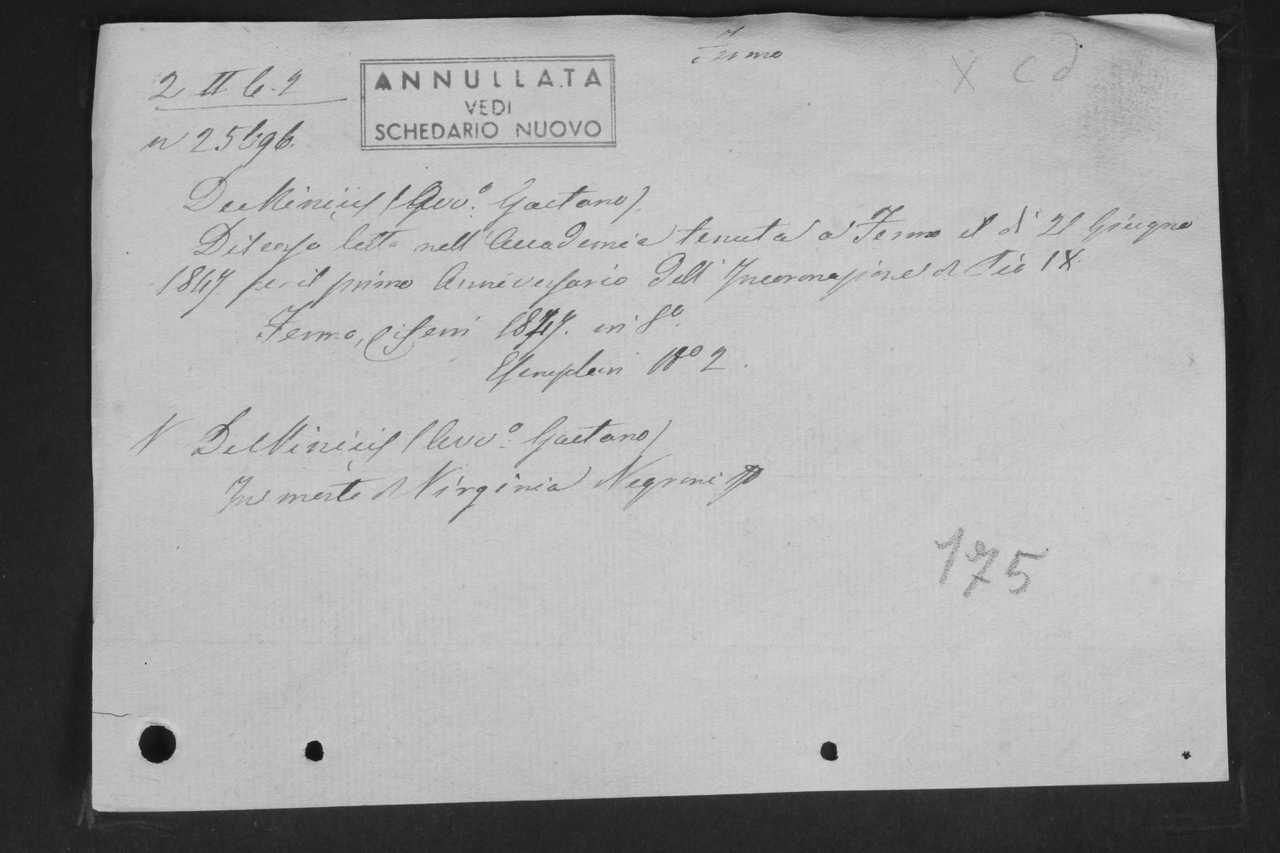 Fermo
X C d
2 II 6. 9
ANNULLATA
VEDI
SCHEDARIO NUOVO
n 25696.
De Minicis (Avv.º Gaetano)
Discorso letto nell'Accademia tenuta a Fermo il dì 21 Giugno
1847 per il primo Anniversario dell'Incoronazione di Pio IX.
Fermo, Ciferri 1847. in 8º.
Esemplari Nº 2.
N De Minicis (Avv.º Gaetano)
In morte di Virginia Negroni
175